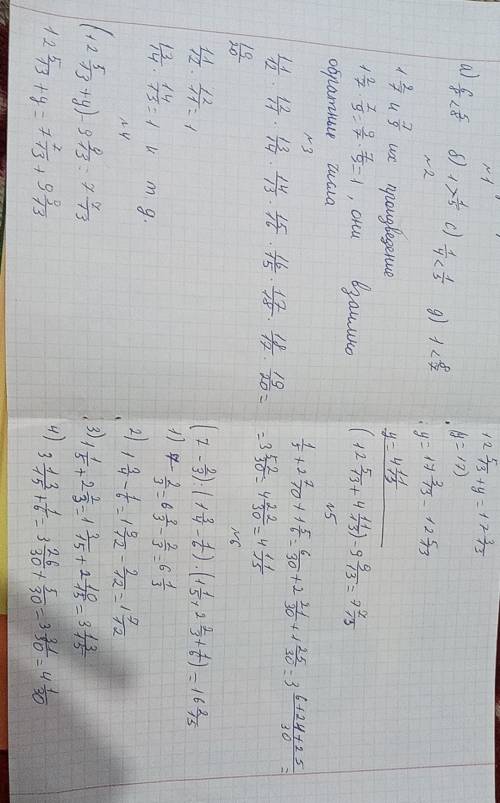 №1
а) 6/8 < 5/8 б) 1 > 1/5 с) 1/4 < 1/3 д) 1 < 8/7
№2
1 2/7 и 7/9 их произведение
1 2/7 · 7/9 = 9/7 · 7/9 = 1, они взаимно
обратные числа
№3
11/12 · 12/11 · 13/14 · 14/13 · 15/16 · 16/15 · 17/18 · 18/17 · 19/20 =
19/20
11/12 · 12/11 = 1
13/14 · 14/13 = 1 и т д.
№4
(12 5/13 + y) - 9 9/13 = 7 7/13
12 5/13 + y = 7 7/13 + 9 9/13
12 5/13 + y = 17 3/13
y = 17 3/13 - 12 5/13
y = 4 11/13
(12 5/13 + 4 11/13) - 9 9/13 = 7 7/13
№5
1/5 + 2 7/10 + 1 5/6 = 6/30 + 2 21/30 + 1 25/30 = 3 6+21+25/30 =
= 3 52/30 = 4 22/30 = 4 11/15
№6
1) 7 - 2/3 = 6 3/3 - 2/3 = 6 1/3
2) 1 3/4 - 1/6 = 1 9/12 - 2/12 = 1 7/12
3) 1 1/5 + 2 2/3 = 1 3/15 + 2 10/15 = 3 13/15
4) 3 13/15 + 1/6 = 3 26/30 + 5/30 = 3 31/30 = 4 1/30